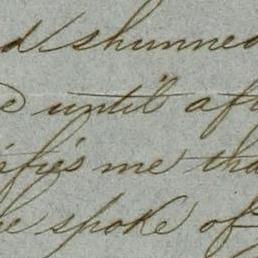 d shunned
until aft
ifies me tha
he spoke of